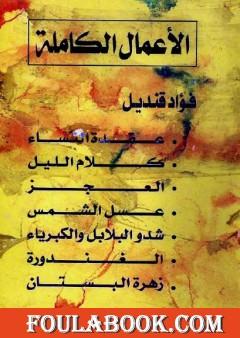 الأعمال الكاملة
فؤاد قنديل
• عقدة النساء
• كلام الليل
• العجز
• عسل الشمس
• شدو البلابل والكبرياء
• الغندورة
• زهرة البستان
FOULABOOK.COM